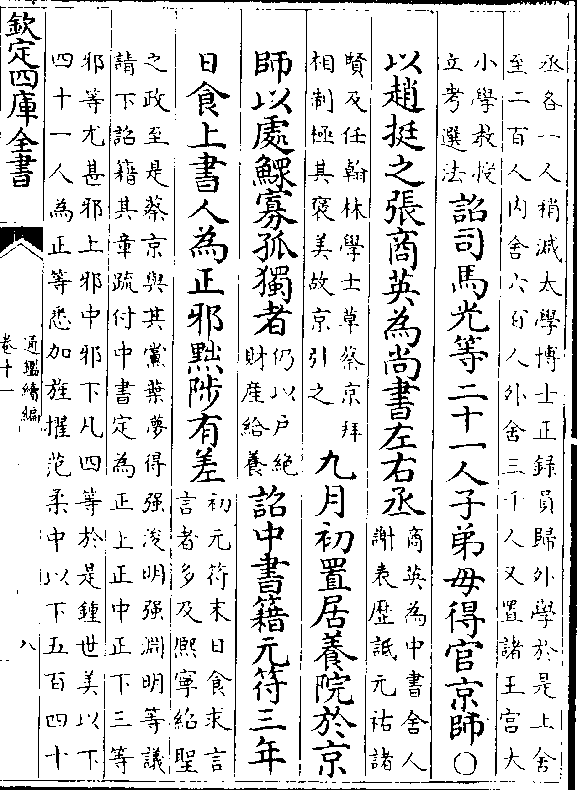 丞各一人稍減太學博士正録員歸外學於是上舍
至二百人内舍六百人外舍三千人又置諸王宫大
小學教授
立考選法
詔司馬光等二十一人子弟毋得官京師○
以趙挺之張商英為尚書左右丞
商英為中書舍人
謝表歴詆元祐諸
賢及任翰林學士草蔡京拜
相制極其褒美故京引之
九月初置居養院於京
師以處鰥寡孤獨者
仍以户絶
財産給養
詔中書籍元符三年
日食上書人為正邪黙陟有差
初元符末日食求言
言者多及熈寧紹聖
之政至是蔡京與其黨葉夢得强浚明强淵明等議
請下詔籍其章疏付中書定為正上正中正下三等
邪等尤甚邪上邪中邪下凡四等於是鍾世美以下
四十一人為正等悉加旌擢范柔中以下五百四十
欽定四庫全書
通鑑續編
卷十一
八